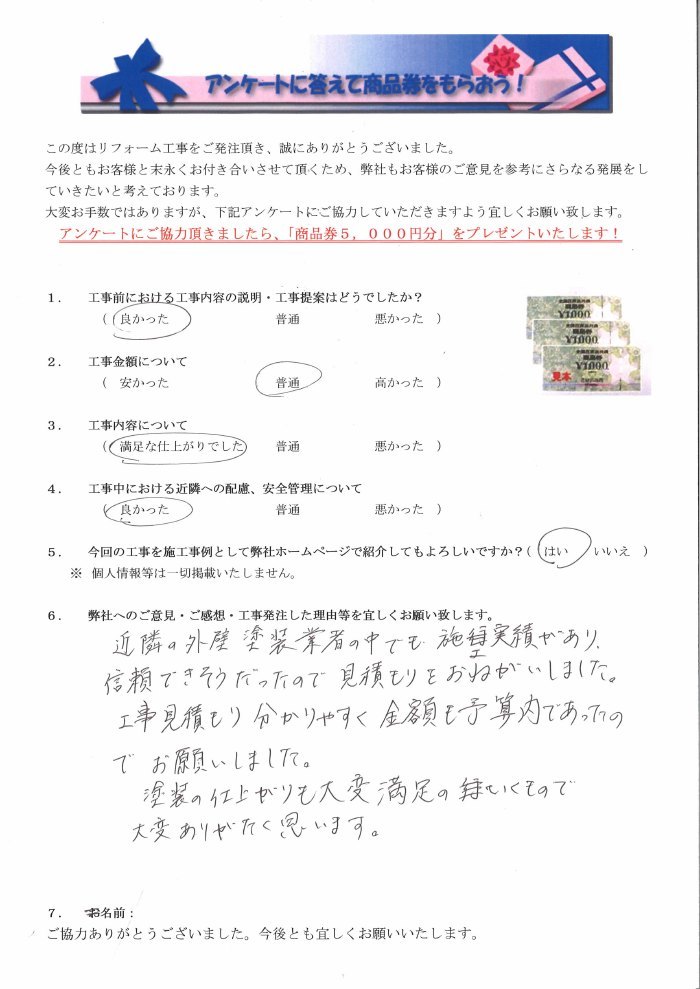 アンケートに答えて商品券をもらおう！
この度はリフォーム工事をご発注頂き、誠にありがとうございました。
今後ともお客様と末永くお付き合いさせて頂くため、弊社もお客様のご意見を参考にさらなる発展をし
ていきたいと考えております。
大変お手数ではありますが、下記アンケートにご協力していただきますよう宜しくお願い致します。
アンケートにご協力頂きましたら、「商品券５，０００円分」をプレゼントいたします！
１．　工事前における工事内容の説明・工事提案はどうでしたか？
（　良かった　　普通　　悪かった　）
２．　工事金額について
（　安かった　　普通　　高かった　）
３．　工事内容について
（　満足な仕上がりでした　　普通　　悪かった　）
４．　工事中における近隣への配慮、安全管理について
（　良かった　　普通　　悪かった　）
５．　今回の工事を施工事例として弊社ホームページで紹介してもよろしいですか？（　はい　　いいえ　）
※ 個人情報等は一切掲載いたしません。
６．　弊社へのご意見・ご感想・工事発注した理由等を宜しくお願い致します。
近隣の外壁塗装業者の中でも施工実績があり、
信頼できそうだったので見積もりをおねがいしました。
工事見積もり分かりやすく金額も予算内であったの
でお願いしました。
塗装の仕上がりも大変満足の
大変ありがたく思います。
７．　お名前：
ご協力ありがとうございました。今後とも宜しくお願いいたします。
¥1,000
¥1,000
¥1,000
見本